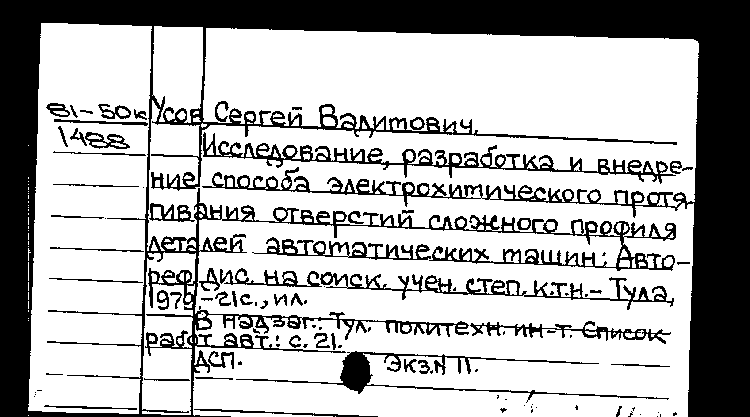 81-50к Усов, Сергей Вадимович.
1488
Исследование, разработка и внедре-
ние способа электрохимического протя-
гивания отверстий сложного профиля
деталей автоматических машин: Авто-
реф. дис. на соиск. учен. степ. к.т.н.- Тула,
1979.-21с., ил.
В надзаг.: Тул. политехн. ин-т. Список
работ авт.: с. 21.
ДСП. Экз.N 11.